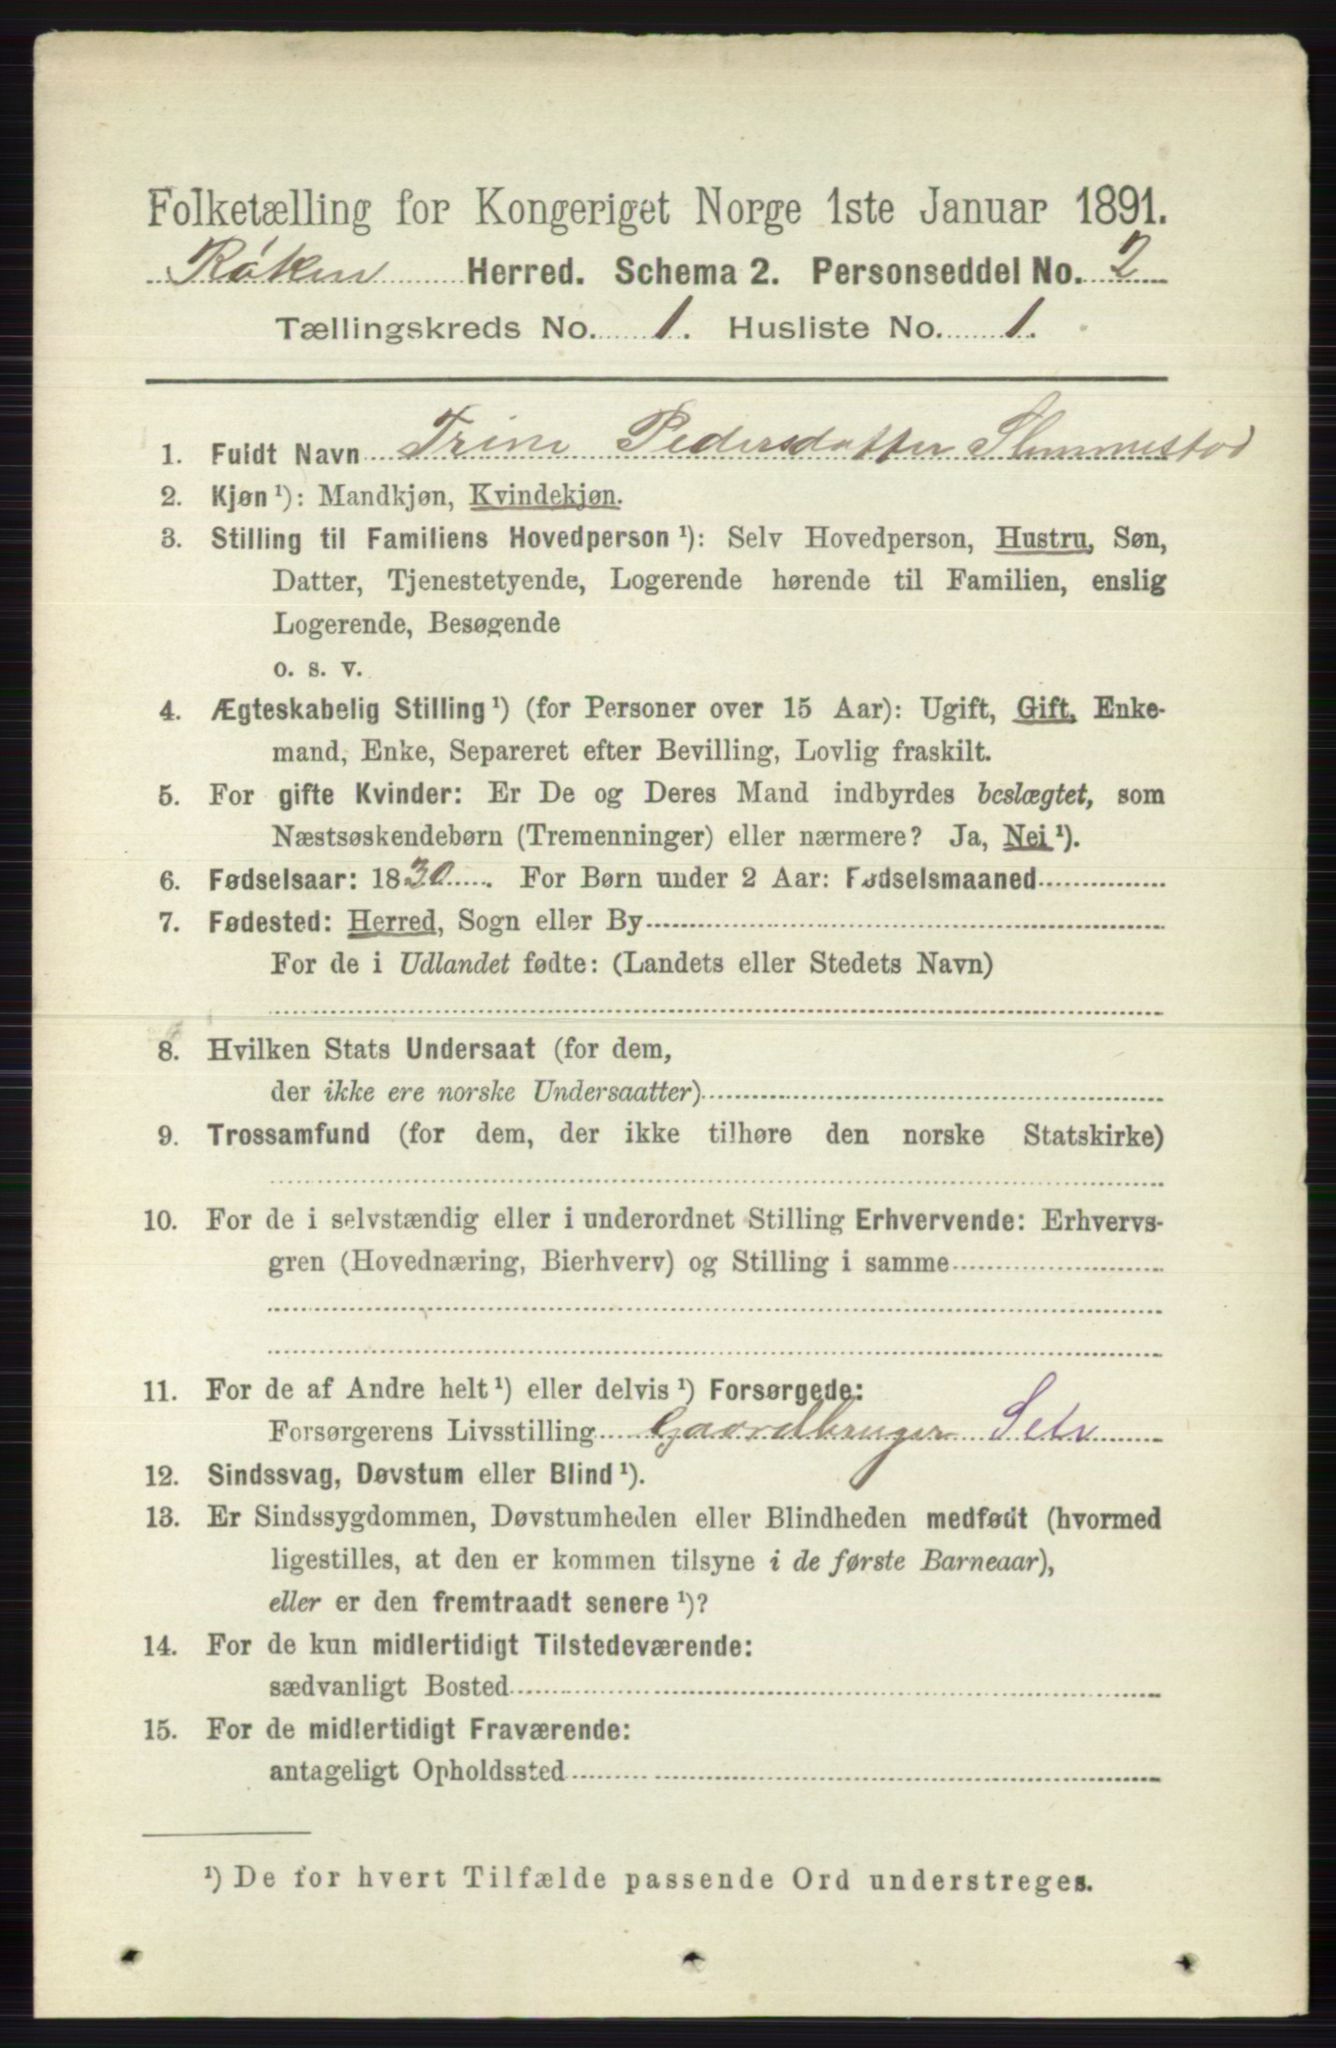 Folketælling for Kongeriget Norge 1ste Januar 1891.
Røken Herred. Schema 2. Personseddel No. 2
Tællingskreds No. 1. Husliste No. 1.
1. Fuldt Navn Trine Pedersdatter Slemmestad
2. Kjøn ¹): Mandkjøn, Kvindekjøn.
3. Stilling til Familiens Hovedperson ¹): Selv Hovedperson, Hustru, Søn,
Datter, Tjenestetyende, Logerende hørende til Familien, enslig
Logerende, Besøgende
o. s. v.
4. Ægteskabelig Stilling ¹) (for Personer over 15 Aar): Ugift, Gift, Enke-
mand, Enke, Separeret efter Bevilling, Lovlig fraskilt.
5. For gifte Kvinder: Er De og Deres Mand indbyrdes beslægtet, som
Næstsøskendebørn (Tremenninger) eller nærmere? Ja, Nei ¹).
6. Fødselsaar: 1830. For Børn under 2 Aar: Fødselsmaaned
7. Fødested: Herred, Sogn eller By
For de i Udlandet fødte: (Landets eller Stedets Navn)
8. Hvilken Stats Undersaat (for dem,
der ikke ere norske Undersaatter)
9. Trossamfund (for dem, der ikke tilhøre den norske Statskirke)
10. For de i selvstændig eller i underordnet Stilling Erhvervende: Erhvervs-
gren (Hovednæring, Bierhverv) og Stilling i samme
11. For de af Andre helt ¹) eller delvis ¹) Forsørgede:
Forsørgerens Livsstilling Gaardbruger Selv
12. Sindssvag, Døvstum eller Blind ¹).
13. Er Sindssygdommen, Døvstumheden eller Blindheden medfødt (hvormed
ligestilles, at den er kommen tilsyne i de første Barneaar),
eller er den fremtraadt senere ¹)?
14. For de kun midlertidigt Tilstedeværende:
sædvanligt Bosted
15. For de midlertidigt Fraværende:
antageligt Opholdssted
¹) De for hvert Tilfælde passende Ord understreges.